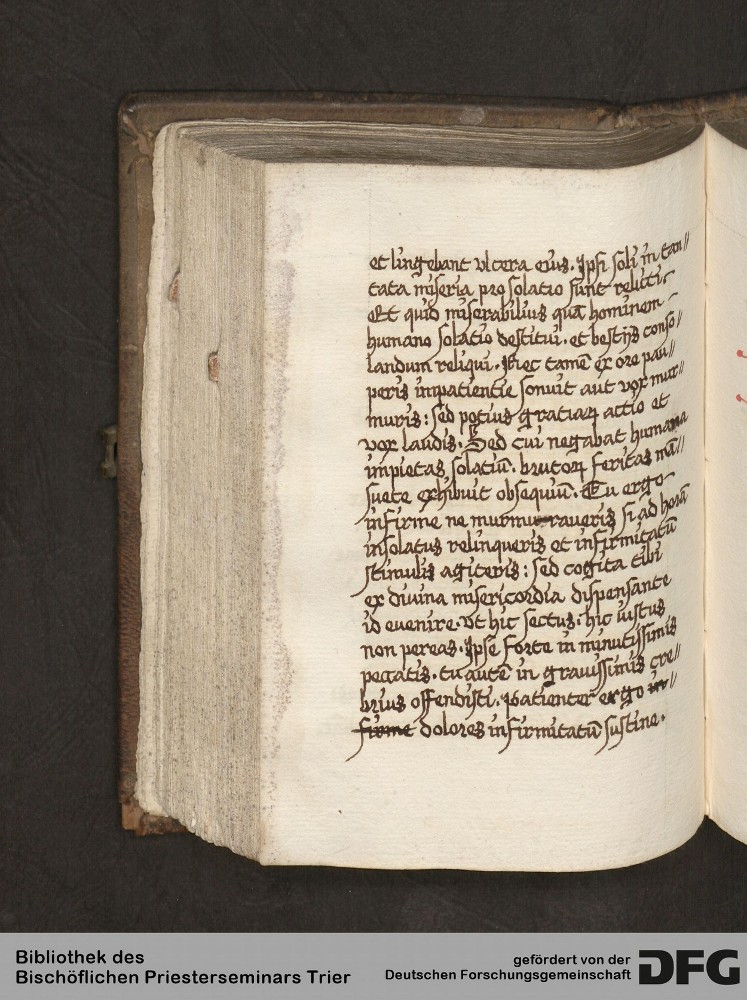 et lingebant ulcera eius. Ipsi soli in tan//
tata miseria pro solatio sunt relicti
Et quid miserabilius quā hominem
humano solatio destitui. et bestijs conso//
landum reliqui. Nec tamē ex ore pau//
peris impatientie sonuit aut vox mur//
muris: sed potius gratiaꝝ actio et
vox laudis. Sed cui negabat humana
impietas solatiū. brutoꝝ feritas mā//
suete exhibuit obsequiū. Tu ergo
infirme ne murmuraueris si ad horā
insolatus relinqueris et infirmitatū
stimulis agiteris: sed cogita tibi
ex diuina misericordia dispensante
id euenire. vt hic sectus. hic iustus
non pereas. Ipse forte in minutissimis
peccatis. tu autē in grauissimis cre//
brius offendisti. Patienter ergo in//
firme dolores infirmitatū sustine.
Bibliothek des
Bischöflichen Priesterseminars Trier
gefördert von der
Deutschen Forschungsgemeinschaft
DFG